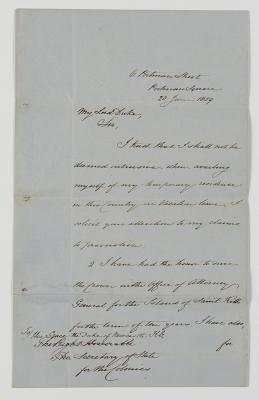 6 Portman Street
Portman Square
20 June 1859
My Lord Duke,
Sir,
I trust that I shall not be
deemed intrusive when availing
myself of my temporary residence
in this Country on leave, I
solicit your attention to my claims
to promotion.
2 I have had the honor to serve
the Crown in the Office of Attorney
General for the Island of Saint Kitts
for the term of ten years. I have also,
To His Grace the Duke of Newcastle K.G. for
The Right Honorable
The Secretary of State
for the Colonies